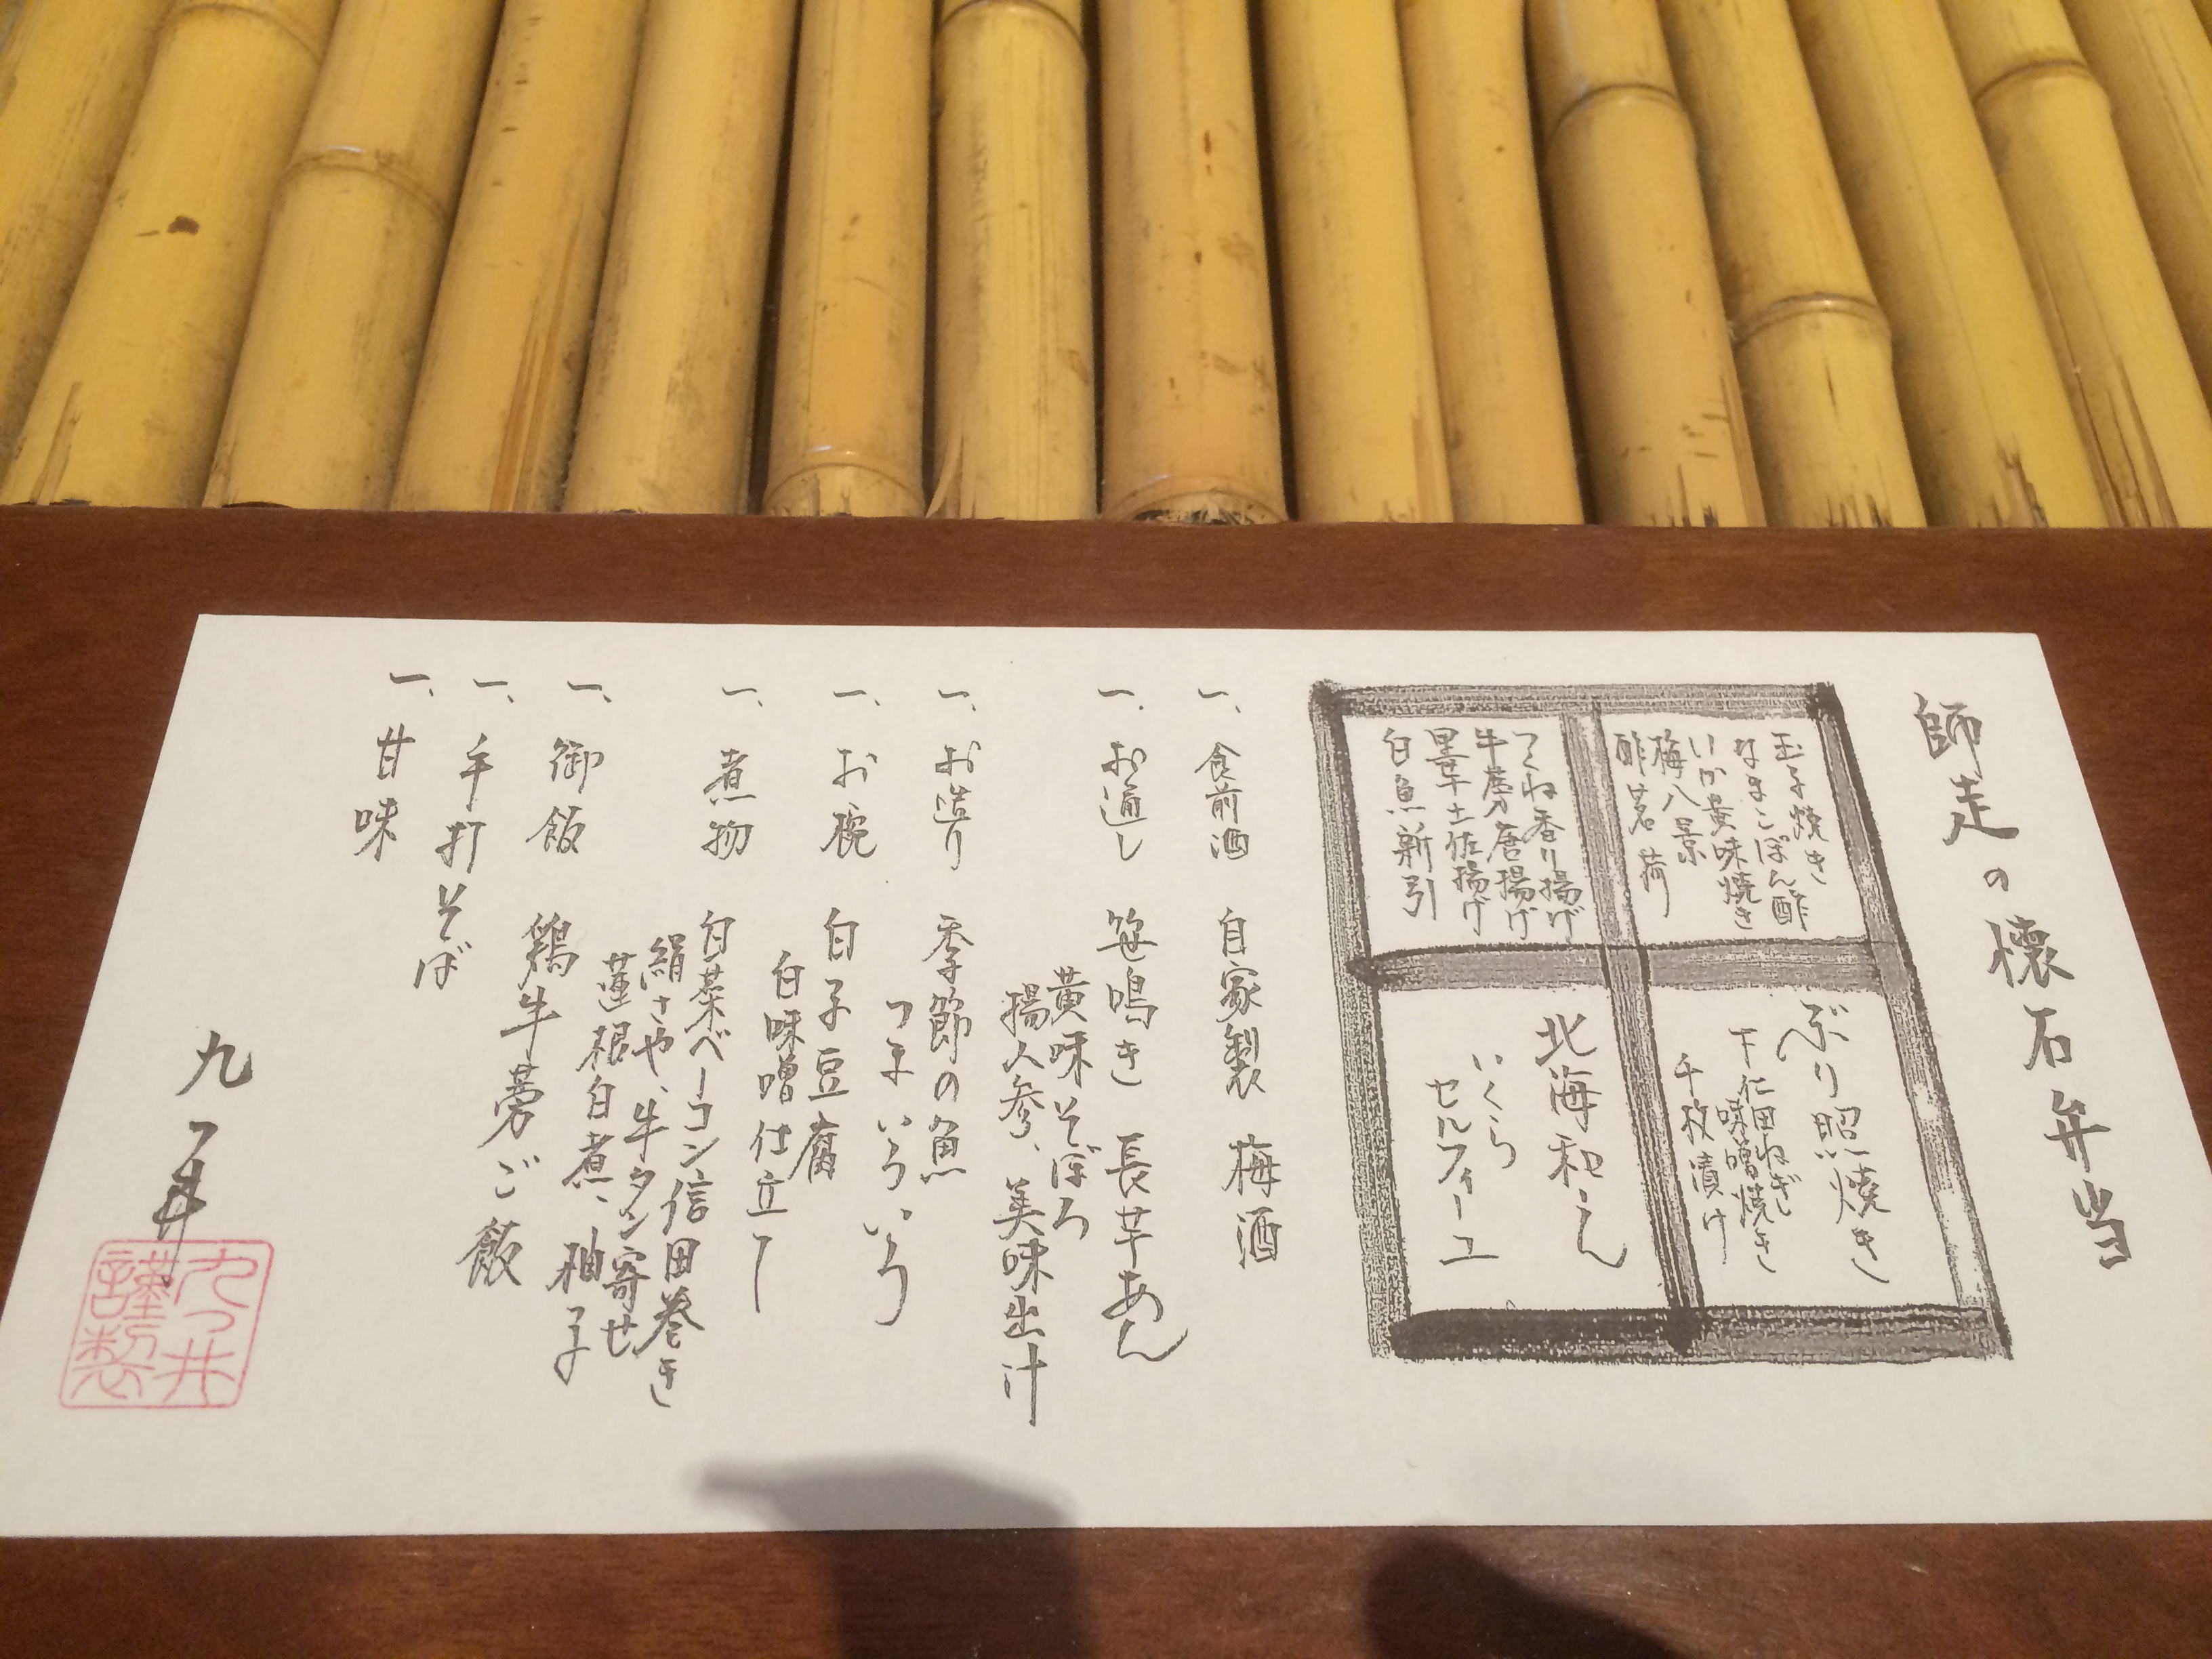 師走の懐石弁当
玉子焼き
なまこぽん酢
いか黄味焼き
梅八景
酢茗荷
つくね香り揚げ
牛蒡唐揚げ
里芋土佐揚げ
白魚新引
ぶり照焼き
下仁田ねぎ
味噌焼き
千枚漬け
北海和え
いくら
セルフィーユ
一、食前酒 自家製 梅酒
一、お通し 笹鳴き 長芋あん
黄味そぼろ
揚人参、美味出汁
一、お造り 季節の魚
つまいろいろ
一、お椀 白子豆腐
白味噌仕立て
一、煮物 白菜ベーコン信田巻き
絹さや、牛タン寄せ
蓮根白煮、柚子
一、御飯 鶏牛蒡ご飯
一、手打そば
一、甘味
九つ井
九つ井
謹製